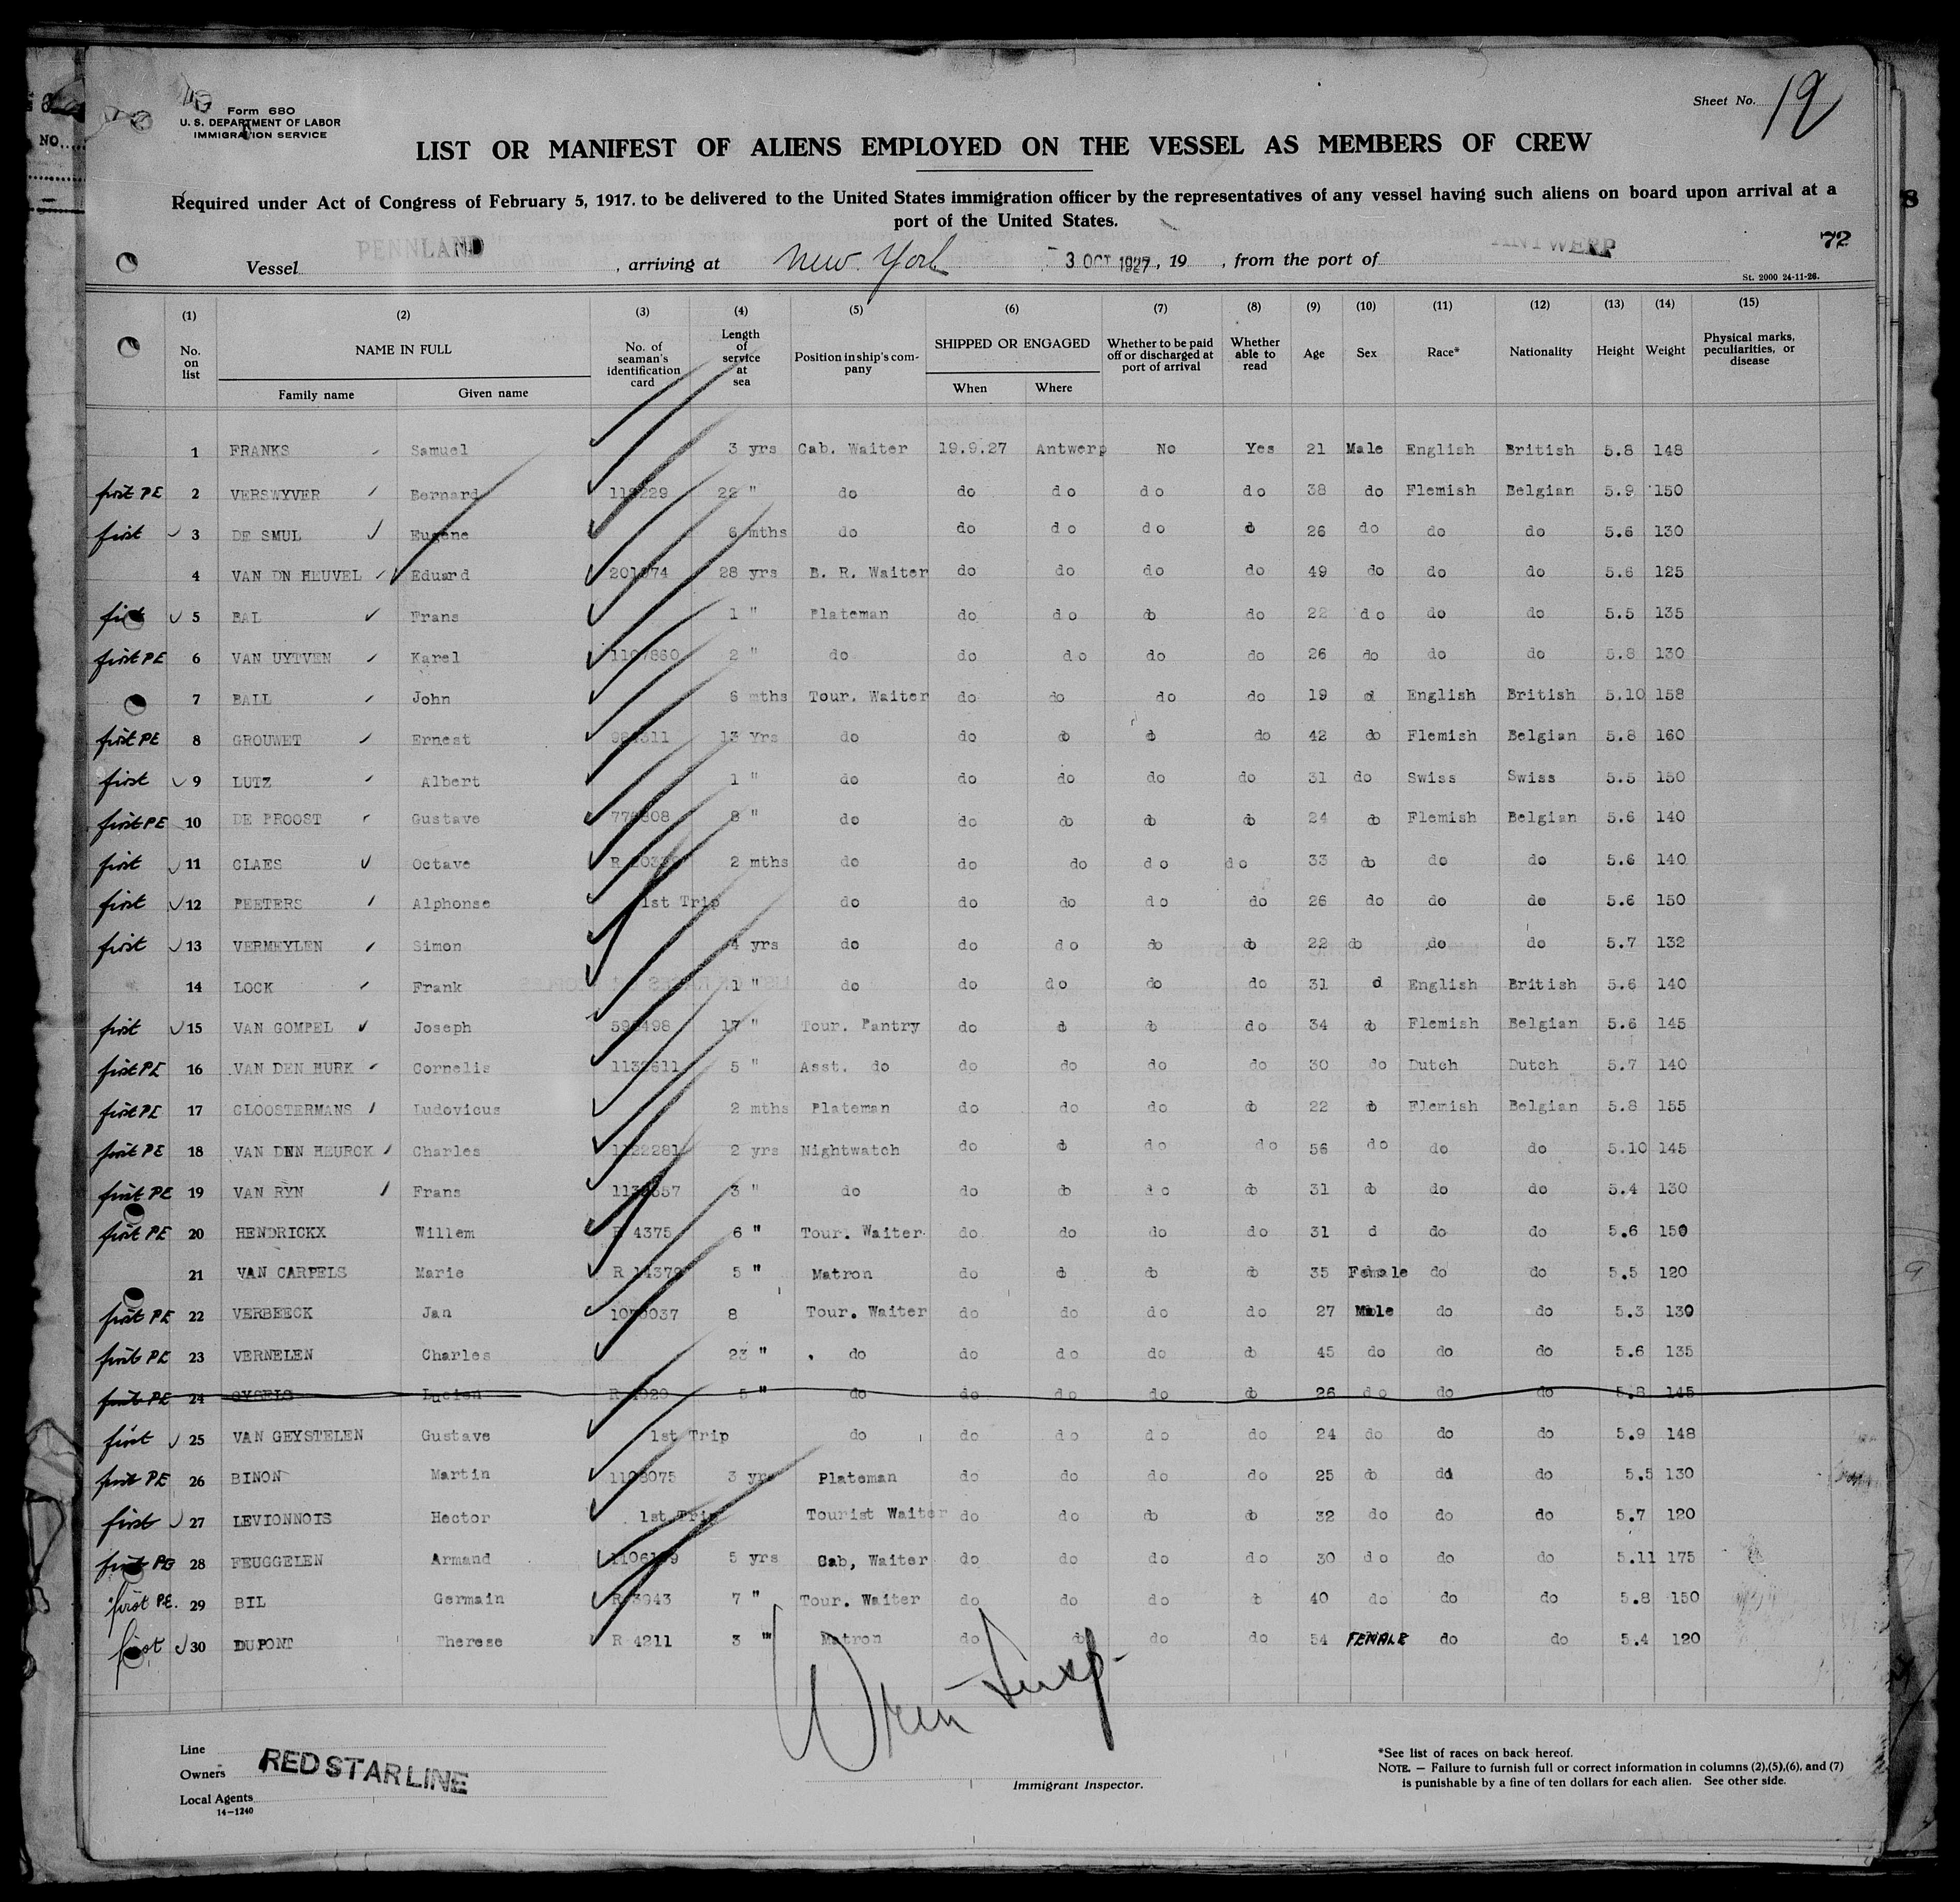 Form 680
U. S. DEPARTMENT OF LABOR
IMMIGRATION SERVICE
Sheet No. 12
LIST OR MANIFEST OF ALIENS EMPLOYED ON THE VESSEL AS MEMBERS OF CREW
Required under Act of Congress of February 5, 1917. to be delivered to the United States immigration officer by the representatives of any vessel having such aliens on board upon arrival at a
port of the United States.
72
Vessel PENNLAND, arriving at New York 3 OCT 1927, 19 , from the port of ANTWERP
St. 2000 24-11-26.
(1) (2) (3) (4) (5) (6) (7) (8) (9) (10) (11) (12) (13) (14) (15)
No. on list NAME IN FULL Family name Given name No. of seaman's identification card Length of service at sea Position in ship's company SHIPPED OR ENGAGED When Where Whether to be paid off or discharged at port of arrival Whether able to read Age Sex Race* Nationality Height Weight Physical marks, peculiarities, or disease
1 FRANKS Samuel 3 yrs Cab. Waiter 19.9.27 Antwerp No Yes 21 Male English British 5.8 148
first PE 2 VERSWYVER Bernard 22 " do do do do do 38 do Flemish Belgian 5.9 150
first 3 DE SMUL Eugene 6 mths do do do do do 26 do do do 5.6 130
4 VAN DN HEUVEL Eduard 28 yrs B. R. Waiter do do do do 49 do do do 5.6 125
first 5 BAL Frans 1 " Plateman do do do do 22 do do do 5.5 135
first PE 6 VAN UYTVEN Karel 2 " do do do do do 26 do do do 5.8 130
7 BALL John 6 mths Tour. Waiter do do do do 19 d English British 5.10 158
first PE 8 GROUWET Ernest 13 Yrs do do do do do 42 do Flemish Belgian 5.8 160
first 9 LUTZ Albert 1 " do do do do do 31 do Swiss Swiss 5.5 150
first PE 10 DE PROOST Gustave 8 " do do do do do 24 do Flemish Belgian 5.6 140
first 11 CLAES Octave 2 mths do do do do do 33 do do do 5.6 140
first 12 PEETERS Alphonse 1st Trip do do do do do 26 do do do 5.6 150
first 13 VERMEYLEN Simon 4 yrs do do do do do 22 do do do 5.7 132
14 LOCK Frank 1 " do do do do do 31 d English British 5.6 140
first 15 VAN GOMPEL Joseph 17 " Tour. Pantry do do do do 34 do Flemish Belgian 5.6 145
first PE 16 VAN DEN HURK Cornelis 5 " Asst. do do do do do 30 do Dutch Dutch 5.7 140
first PE 17 CLOOSTERMANS Ludovicus 2 mths Plateman do do do do 22 do Flemish Belgian 5.8 155
first PE 18 VAN DEN HEURCK Charles 1122281 2 yrs Nightwatch do do do do 56 do do do 5.10 145
first PE 19 VAN RYN Frans 3 " do do do do do 31 do do do 5.4 130
first PE 20 HENDRICKX Willem R 4375 6 " Tour. Waiter do do do do 31 d do do 5.6 150
21 VAN CARPELS Marie 5 " Matron do do do do 35 Female do do 5.5 120
first PE 22 VERBEECK Jan 8 Tour. Waiter do do do do 27 Male do do 5.3 130
first PE 23 VERNELEN Charles 23 " do do do do do 45 do do do 5.6 135
first PE 24 GYSELS Lucien 5 " do do do do do 26 do do do 5.8 145
first 25 VAN GEYSTELEN Gustave 1st Trip do do do do do 24 do do do 5.9 148
first PE 26 BINON Martin 3 yrs Plateman do do do do 25 do do do 5.5 130
first 27 LEVIONNOIS Hector 1st Trip Tourist Waiter do do do do 32 do do do 5.7 120
first PE 28 FEUGGELEN Armand 5 yrs Cab, Waiter do do do do 30 do do do 5.11 175
first PE. 29 BIL Germain R 3943 7 " Tour. Waiter do do do do 40 do do do 5.8 150
first 30 DUPONT Therese R 4211 3 " Matron do do do do 54 FEMALE do do 5.4 120
Line
Owners RED STAR LINE
Local Agents
14—1240
Immigrant Inspector.
*See list of races on back hereof.
NOTE. — Failure to furnish full or correct information in columns (2),(5),(6), and (7)
is punishable by a fine of ten dollars for each alien. See other side.